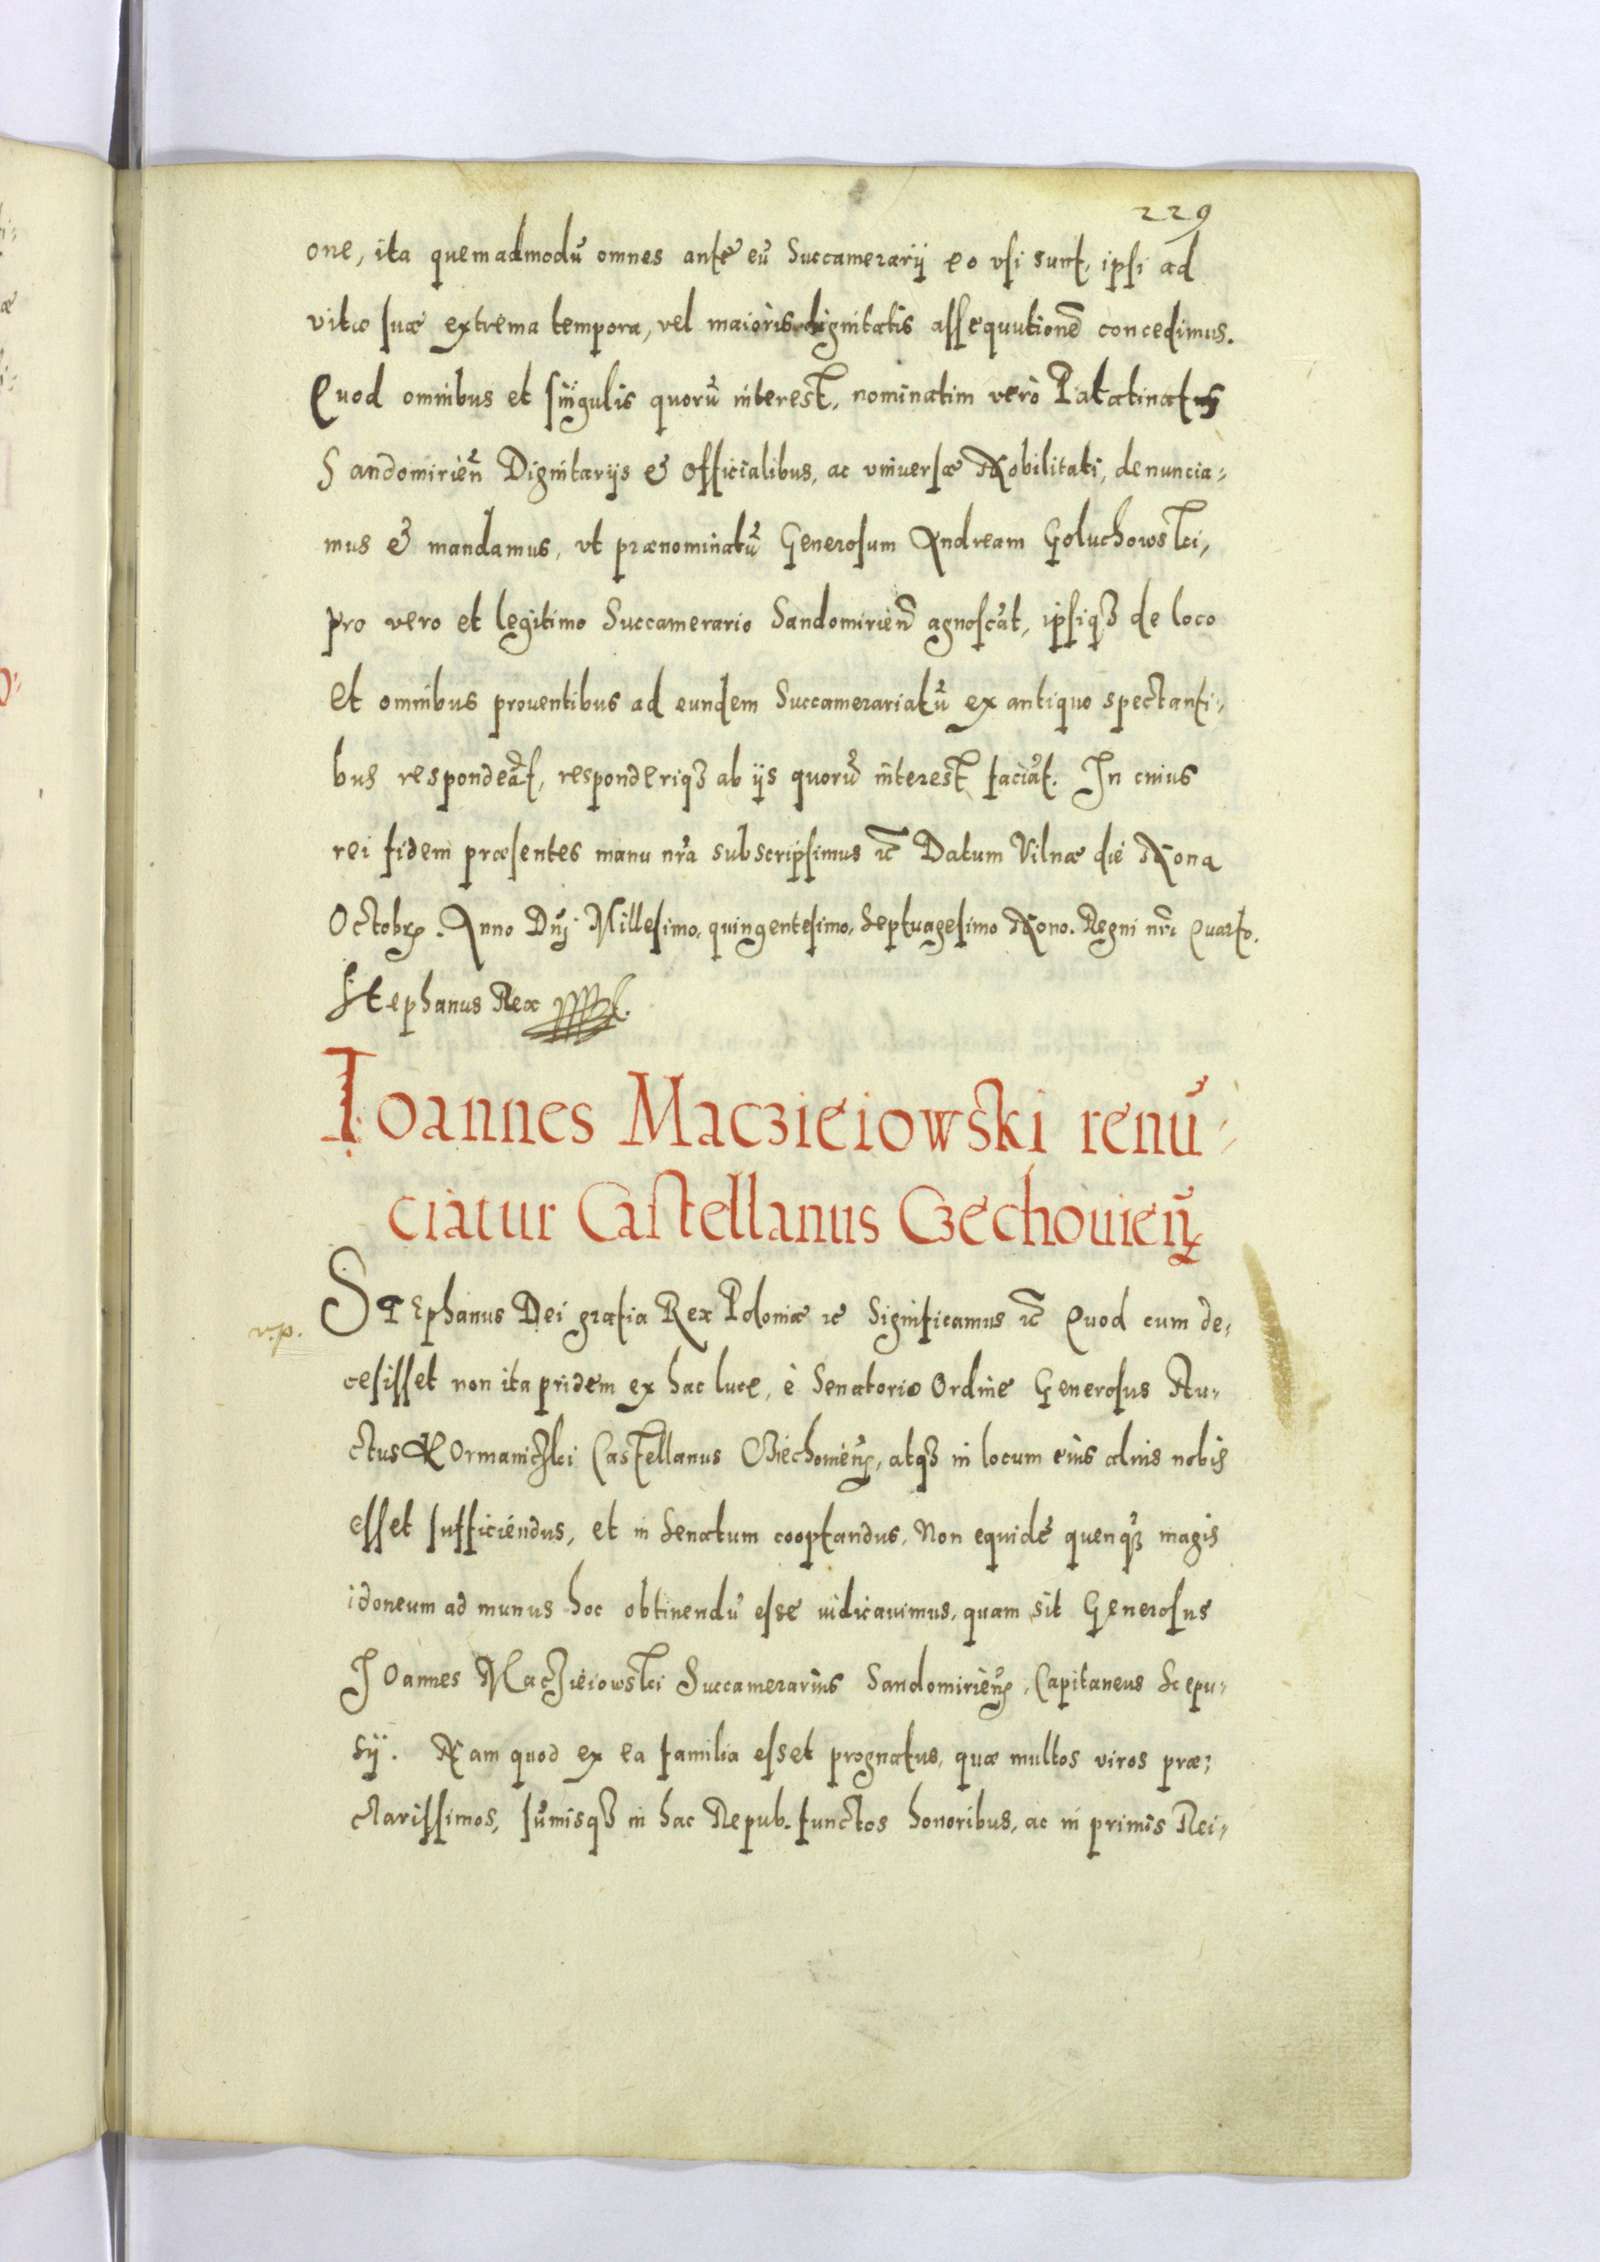 229
one, ita quemadmodũ omnes ante eũ Succamerarij eo vsi sunt, ipsi ad
vitæ suæ extrema tempora, vel maioris dignitatis assequutionẽ concedimus.
Quod omnibus et singulis quorũ interest, nominatim verò Palatinatus
Sandomirieñ Dignitarijs & Officialibus, ac vniuersæ Nobilitati, denuncia-
mus & mandamus, vt prænominatũ Generosum Andream Goluchowski,
pro vero et legitimo Succamerario Sandomirieñ agnoscãt, ipsiqꝫ de loco
et omnibus prouentibus ad eundem Succamerariatũ ex antiquo spectanti-
bus respondeãt, responderiqꝫ ab ijs quorũ interest faciãt. In cuius
rei fidem præsentes manu nr̃a subscripsimus ⁊c̃ Datum Vilnæ die Nona
Octobrꝭ. Anno Dñj Millesimo, quingentesimo, Septuagesimo Nono. Regni nr̃i Quarto.
Stephanus Rex
Ioannes Maczieiowski renũ-
ciatur Castellanus Czechouieñ
STEphanus Dei gratia Rex Poloniæ ⁊c Significamus ⁊c̃ Quod cum de-
v.p.
cesisset non ita pridem ex hac luce, è Senatorio Ordine Generosus Au-
ctus Kormaniczki Castellanus Cziechouieñ, atqꝫ in locum eius alius nobis
esset sufficiendus, et in Senatum cooptandus, Non equidẽ quenqꝫ̃ magis
idoneum ad munus hoc obtinendũ esse iudicauimus, quam sit Generosus
Ioannes Maczieiowski Succamerarius Sandomirieñ, Capitaneus Scepu-
sij. Nam quod ex ea familia esset prognatus, quæ multos viros præ-
clarissimos, sũmisqꝫ in hac Repub. functos honoribus, ac in primis Rei-